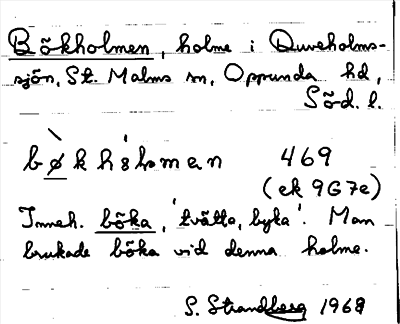 Bökholmen, holme i Duveholms-
sjön, St. Malms sn, Oppunda hd,
Söd. l.
469
(ek 9G7e)
Inneh. böka, 'tvätta, byka'. Man
brukade böka vid denna holme.
S. Strandberg 1968